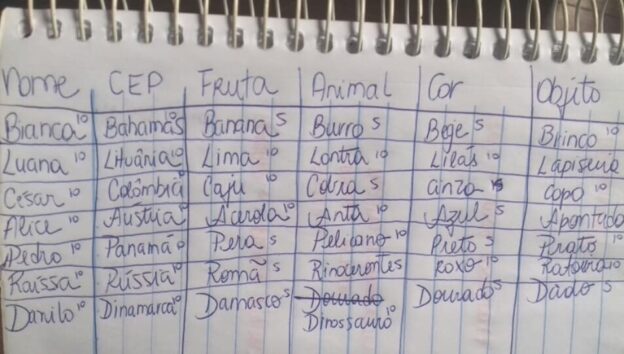 Nome CEP Fruta Animal Cor Objito
Bianca 10 Bahamas 10 Banana 5 Burro 5 Bege 5 Brinco 10
Luana 10 Lituânia 10 Lima 10 Lontra 10 Lilás 10 Lapiseira
César 10 Colômbia 10 Caju 10 Cobra 5 cinza Copo 10
Alice 10 Áustria 10 Acerola 10 Anta 10 Azul 5 Apontado
Pedro 10 Panamá Pera 5 Pelicano 10 Preto 5 Prato 10
Raissa 10 Rússia 10 Romã 5 Rinoceronte 5 Roxo 10 10
Danilo 10 Dinamarca 10 Damasco 5 Dourado Dourado 5 Dado 5
Dinossauro 10